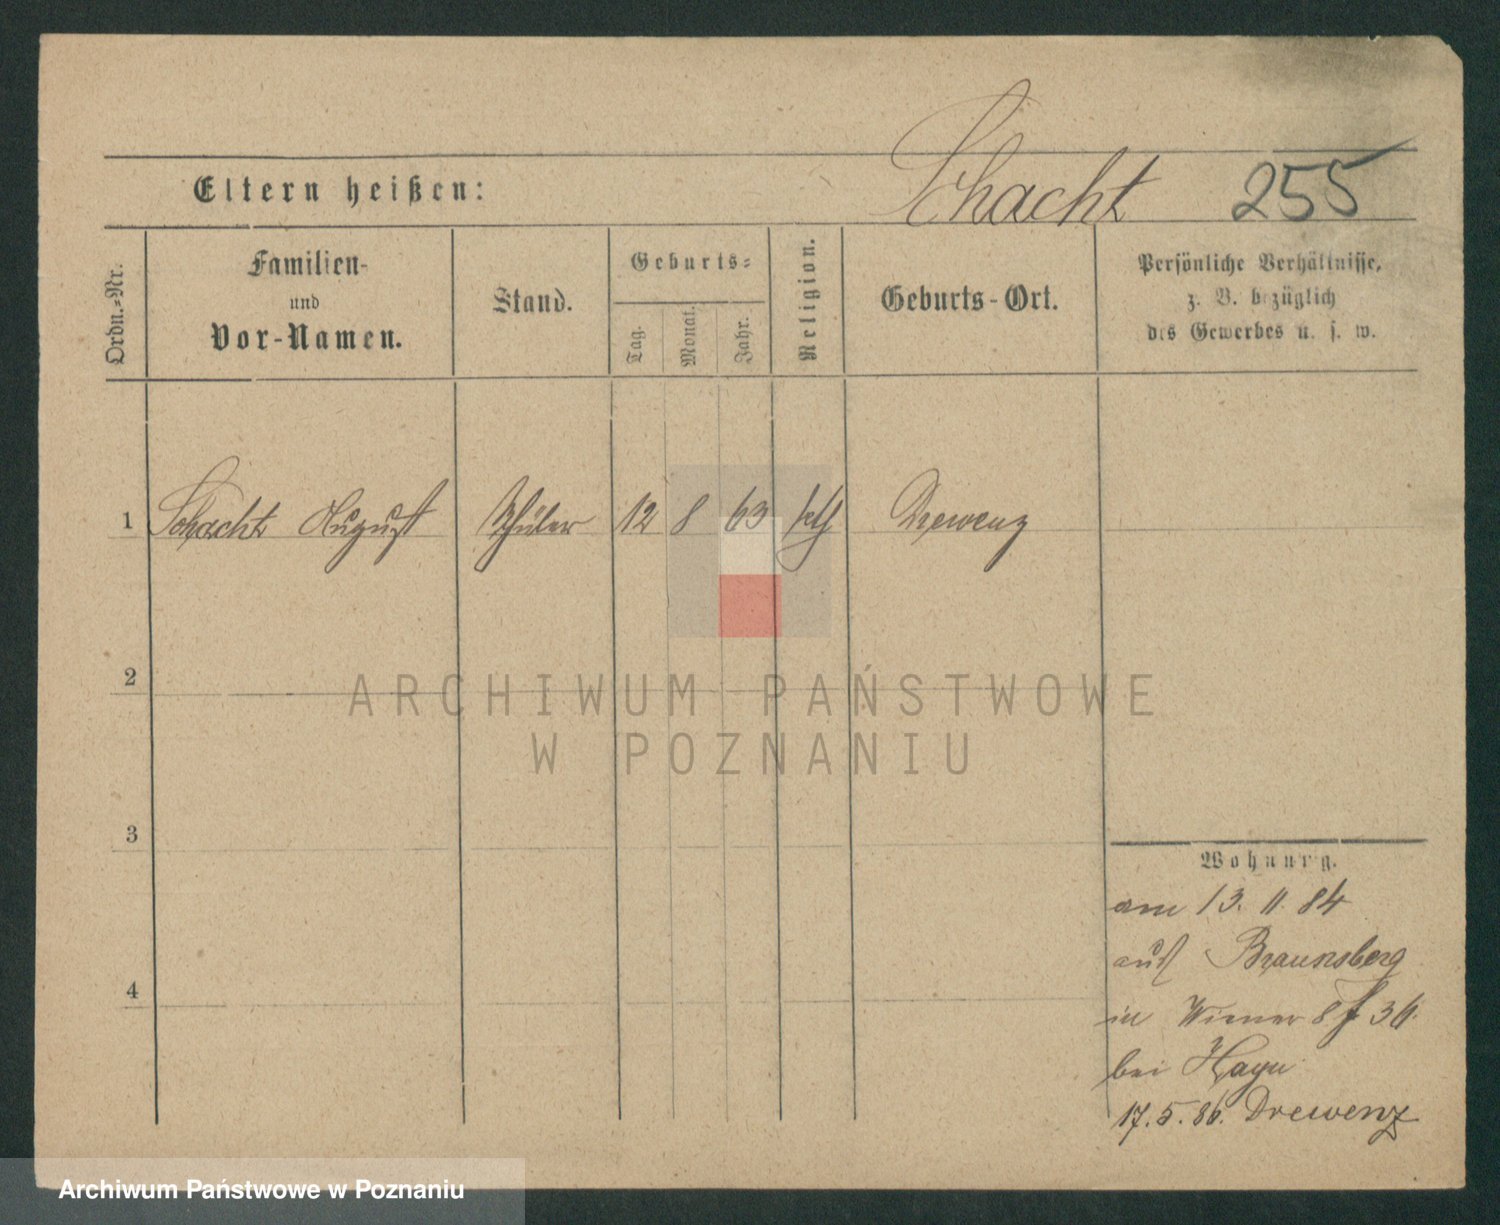 Schacht 255
Eltern heißen:
Ordn.-Nr.
Familien-
und
Vor-Namen.
Stand.
Geburts-
Tag.
Monat.
Jahr.
Religion.
Geburts-Ort.
Persönliche Verhältnisse,
z. B. bezüglich
des Gewerbes u. s. w.
1 Schacht August Schüler 12 8 63 kth Drewenz
2
ARCHIWUM PAŃSTWOWE
W POZNANIU
3
Wohnung.
am 13. 11. 84
aus Braunsberg
4
in Wiener 8
bei Hayn
17. 5. 86. Drewenz
Archiwum Państwowe w Poznaniu